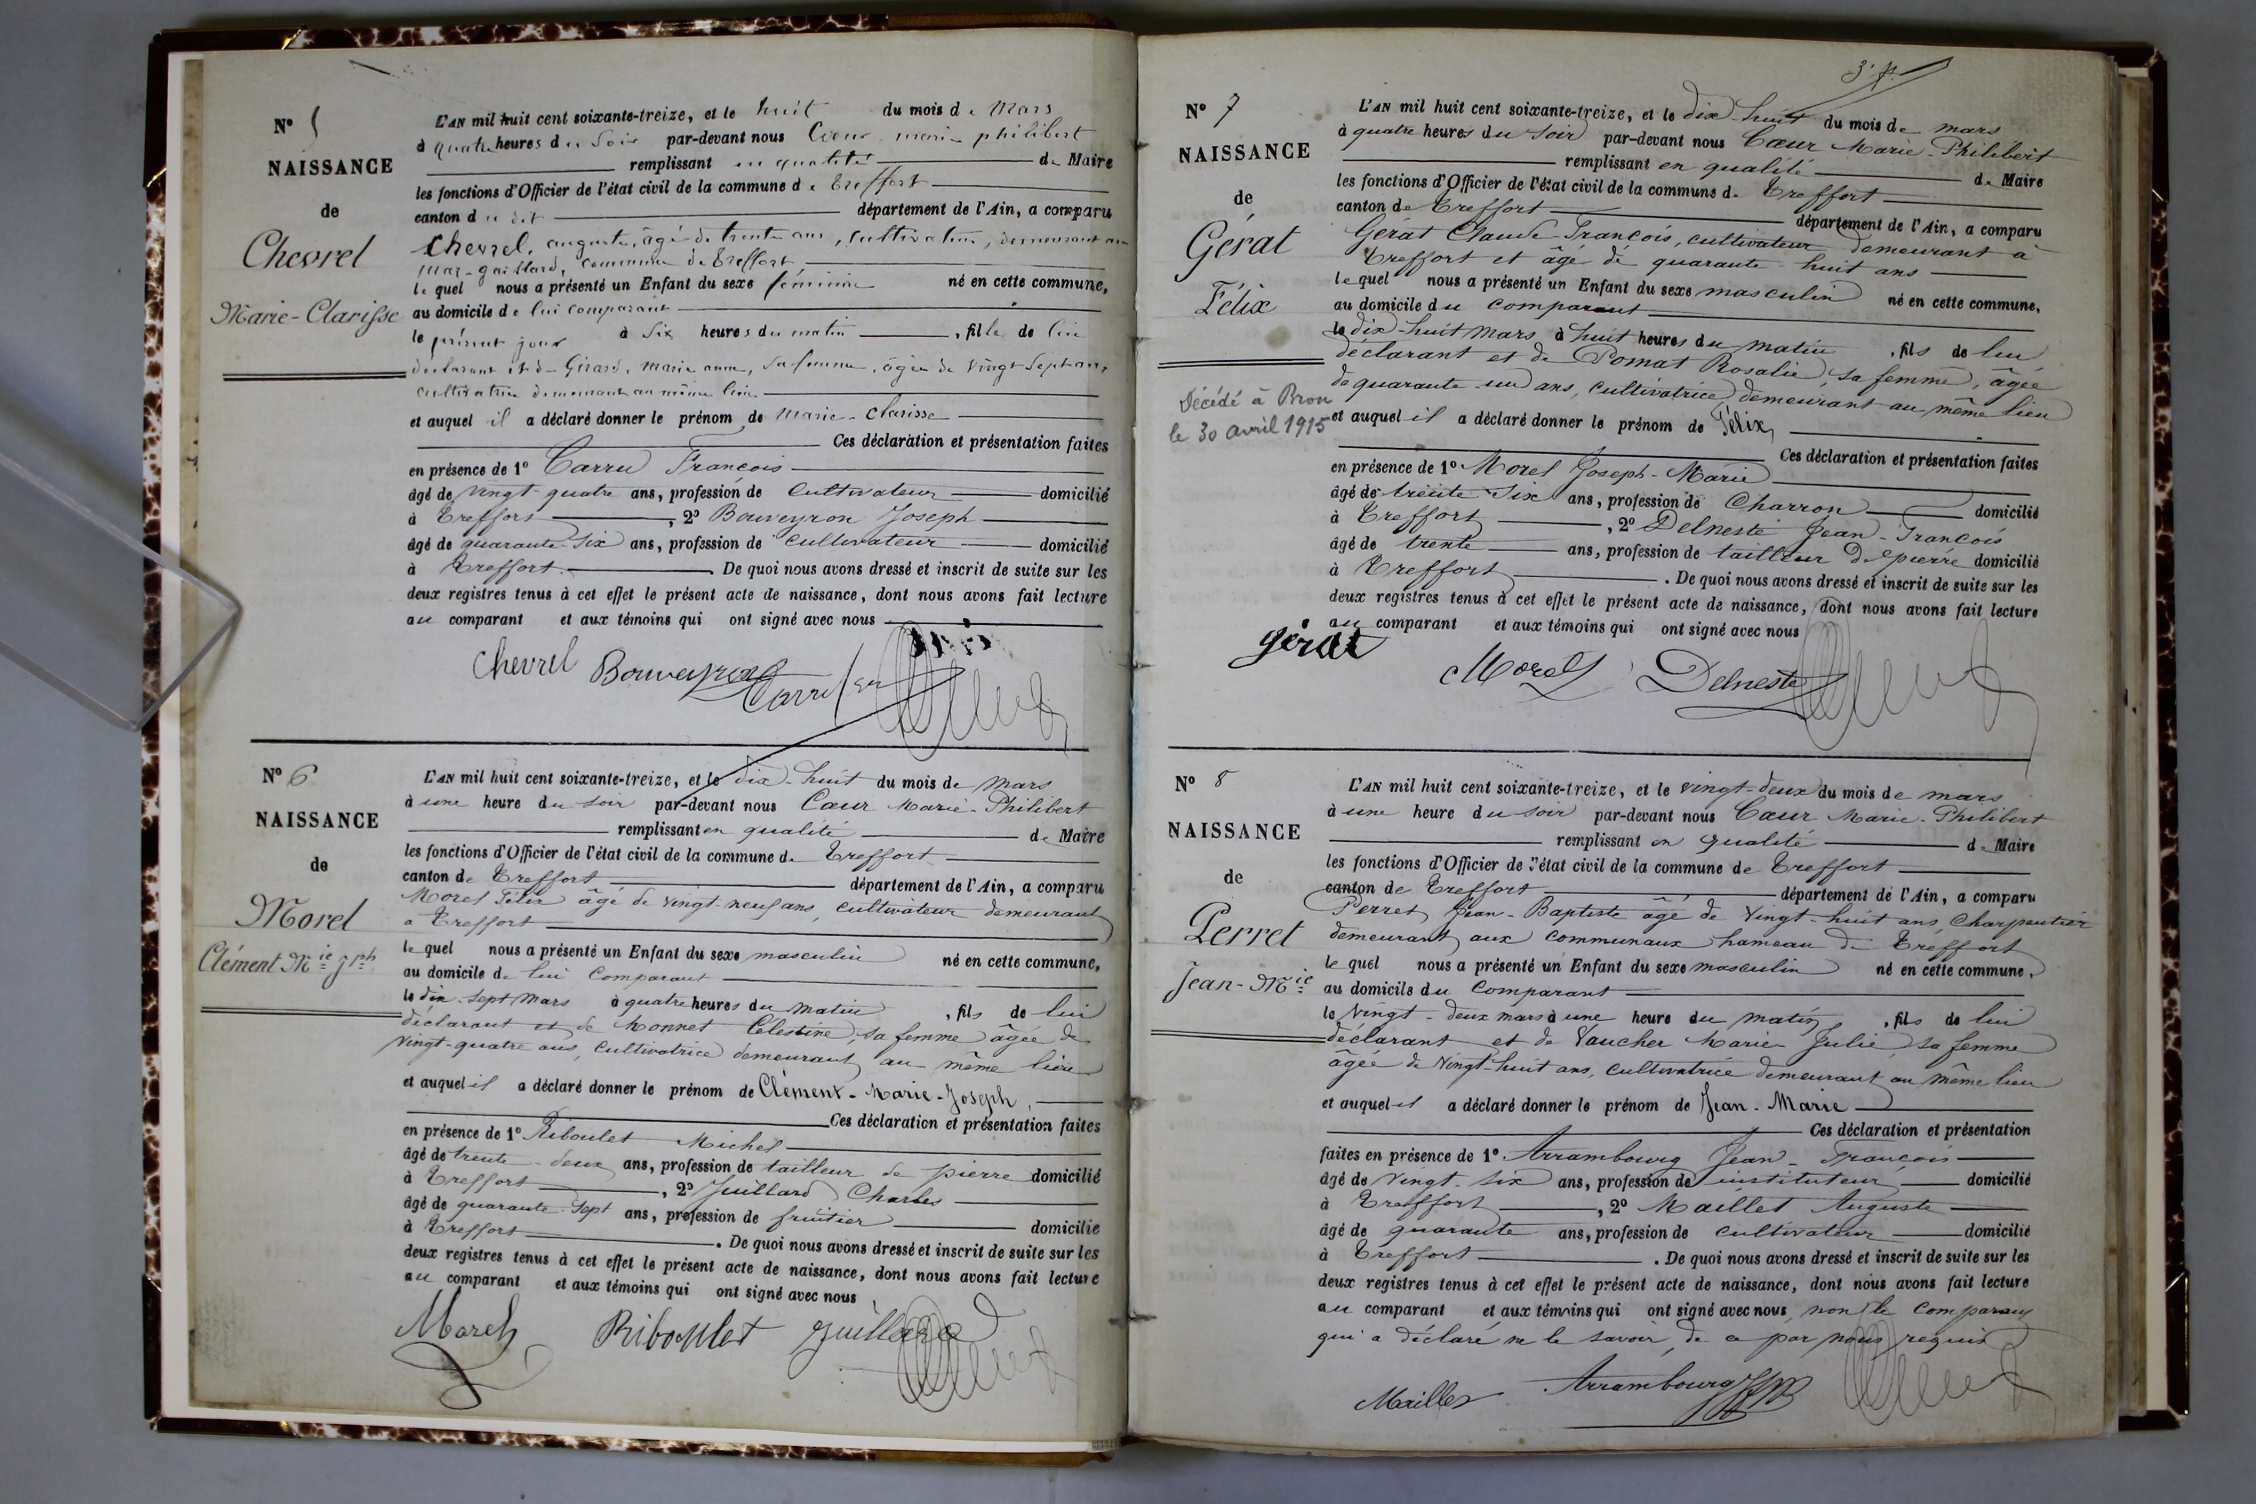 N° 5
NAISSANCE
de
Chevrel
Marie-Clarisse
L'AN mil huit cent soixante-treize, et le huit du mois de Mars
à quatre heures du Soir par-devant nous Cœur marie philibert
remplissant en qualité de Maire
les fonctions d'Officier de l'état civil de la commune de Treffort
canton du dit département de l'Ain, a comparu
Chevrel, auguste, âgé de trente ans, cultivateur, demeurant au
mas-gaillard, commune de Treffort,
lequel nous a présenté un Enfant du sexe féminin né en cette commune,
au domicile de lui comparant
le présent jour à Six heures du matin, fille de lui
déclarant et de Girard, marie anne, Sa femme, âgée de vingt Sept ans,
cultivatrice demeurant au même lieu
et auquel il a déclaré donner le prénom de Marie-Clarisse
Ces déclaration et présentation faites
en présence de 1° Carru François
âgé de vingt-quatre ans, profession de cultivateur domicilié
à Treffort, 2° Bouveyron Joseph
âgé de quarante-six ans, profession de cultivateur domicilié
à Treffort. De quoi nous avons dressé et inscrit de suite sur les
deux registres tenus à cet effet le présent acte de naissance, dont nous avons fait lecture
au comparant et aux témoins qui ont signé avec nous
Chevrel Bouveyron Carru
N° 6
NAISSANCE
de
Morel
Clément Mie Jph
L'AN mil huit cent soixante-treize, et le dix-huit du mois de Mars
à une heure du soir par-devant nous Cœur Marie-Philibert
remplissant en qualité de Maire
les fonctions d'Officier de l'état civil de la commune de Treffort
canton de Treffort département de l'Ain, a comparu
Morel Félix âgé de vingt-neuf ans, cultivateur demeurant
à Treffort
lequel nous a présenté un Enfant du sexe masculin né en cette commune,
au domicile de lui comparant
le dix-sept Mars à quatre heures du matin, fils de lui
déclarant et de Monnet Célestine, sa femme âgée de
vingt-quatre ans, cultivatrice demeurant au même lieu
et auquel il a déclaré donner le prénom de Clément-Marie-Joseph,
Ces déclaration et présentation faites
en présence de 1° Riboulet Michel
âgé de trente-deux ans, profession de tailleur de pierre domicilié
à Treffort, 2° Juillard Charles
âgé de quarante-sept ans, profession de fruitier domicilié
à Treffort. De quoi nous avons dressé et inscrit de suite sur les
deux registres tenus à cet effet le présent acte de naissance, dont nous avons fait lecture
au comparant et aux témoins qui ont signé avec nous
Morel Riboulet Juillard
N° 7
NAISSANCE
de
Gérat
Félix
Décédé à Bron
le 30 avril 1915
L'AN mil huit cent soixante-treize, et le dix-huit du mois de mars
à quatre heures du soir par-devant nous Cœur Marie-Philibert
remplissant en qualité de Maire
les fonctions d'Officier de l'état civil de la commune de Treffort
canton de Treffort département de l'Ain, a comparu
Gérat Claude-François, cultivateur demeurant à
Treffort et âgé de quarante-huit ans
lequel nous a présenté un Enfant du sexe masculin né en cette commune,
au domicile du comparant
le dix-huit mars à huit heures du matin, fils de lui
déclarant et de Pomat Rosalie, sa femme, âgée
de quarante-un ans, cultivatrice, demeurant au même lieu
et auquel il a déclaré donner le prénom de Félix,
Ces déclaration et présentation faites
en présence de 1° Morel Joseph-Marie
âgé de trente six ans, profession de Charron domicilié
à Treffort, 2° Delneste Jean-François
âgé de trente ans, profession de tailleur de pierre domicilié
à Treffort. De quoi nous avons dressé et inscrit de suite sur les
deux registres tenus à cet effet le présent acte de naissance, dont nous avons fait lecture
au comparant et aux témoins qui ont signé avec nous
gérat Morel Delneste
N° 8
NAISSANCE
de
Perret
Jean-Mie
L'AN mil huit cent soixante-treize, et le vingt-deux du mois de mars
à une heure du soir par-devant nous Cœur Marie-Philibert
remplissant en qualité de Maire
les fonctions d'Officier de l'état civil de la commune de Treffort
canton de Treffort département de l'Ain, a comparu
Perret Jean-Baptiste âgé de vingt-huit ans, Charpentier
demeurant aux communaux hameau de Treffort
lequel nous a présenté un Enfant du sexe masculin né en cette commune,
au domicile du comparant
le vingt-deux mars à une heure du matin, fils de lui
déclarant et de Vaucher Marie Julie, sa femme
âgée de vingt-huit ans, cultivatrice demeurant au même lieu
et auquel il a déclaré donner le prénom de Jean-Marie
Ces déclaration et présentation
faites en présence de 1° Arrambourg Jean-François
âgé de vingt-six ans, profession de instituteur domicilié
à Treffort, 2° Maillet Auguste
âgé de quarante ans, profession de cultivateur domicilié
à Treffort. De quoi nous avons dressé et inscrit de suite sur les
deux registres tenus à cet effet le présent acte de naissance, dont nous avons fait lecture
au comparant et aux témoins qui ont signé avec nous, non le comparant
qui a déclaré ne le savoir, de ce par nous requis
Maillet Arrambourg